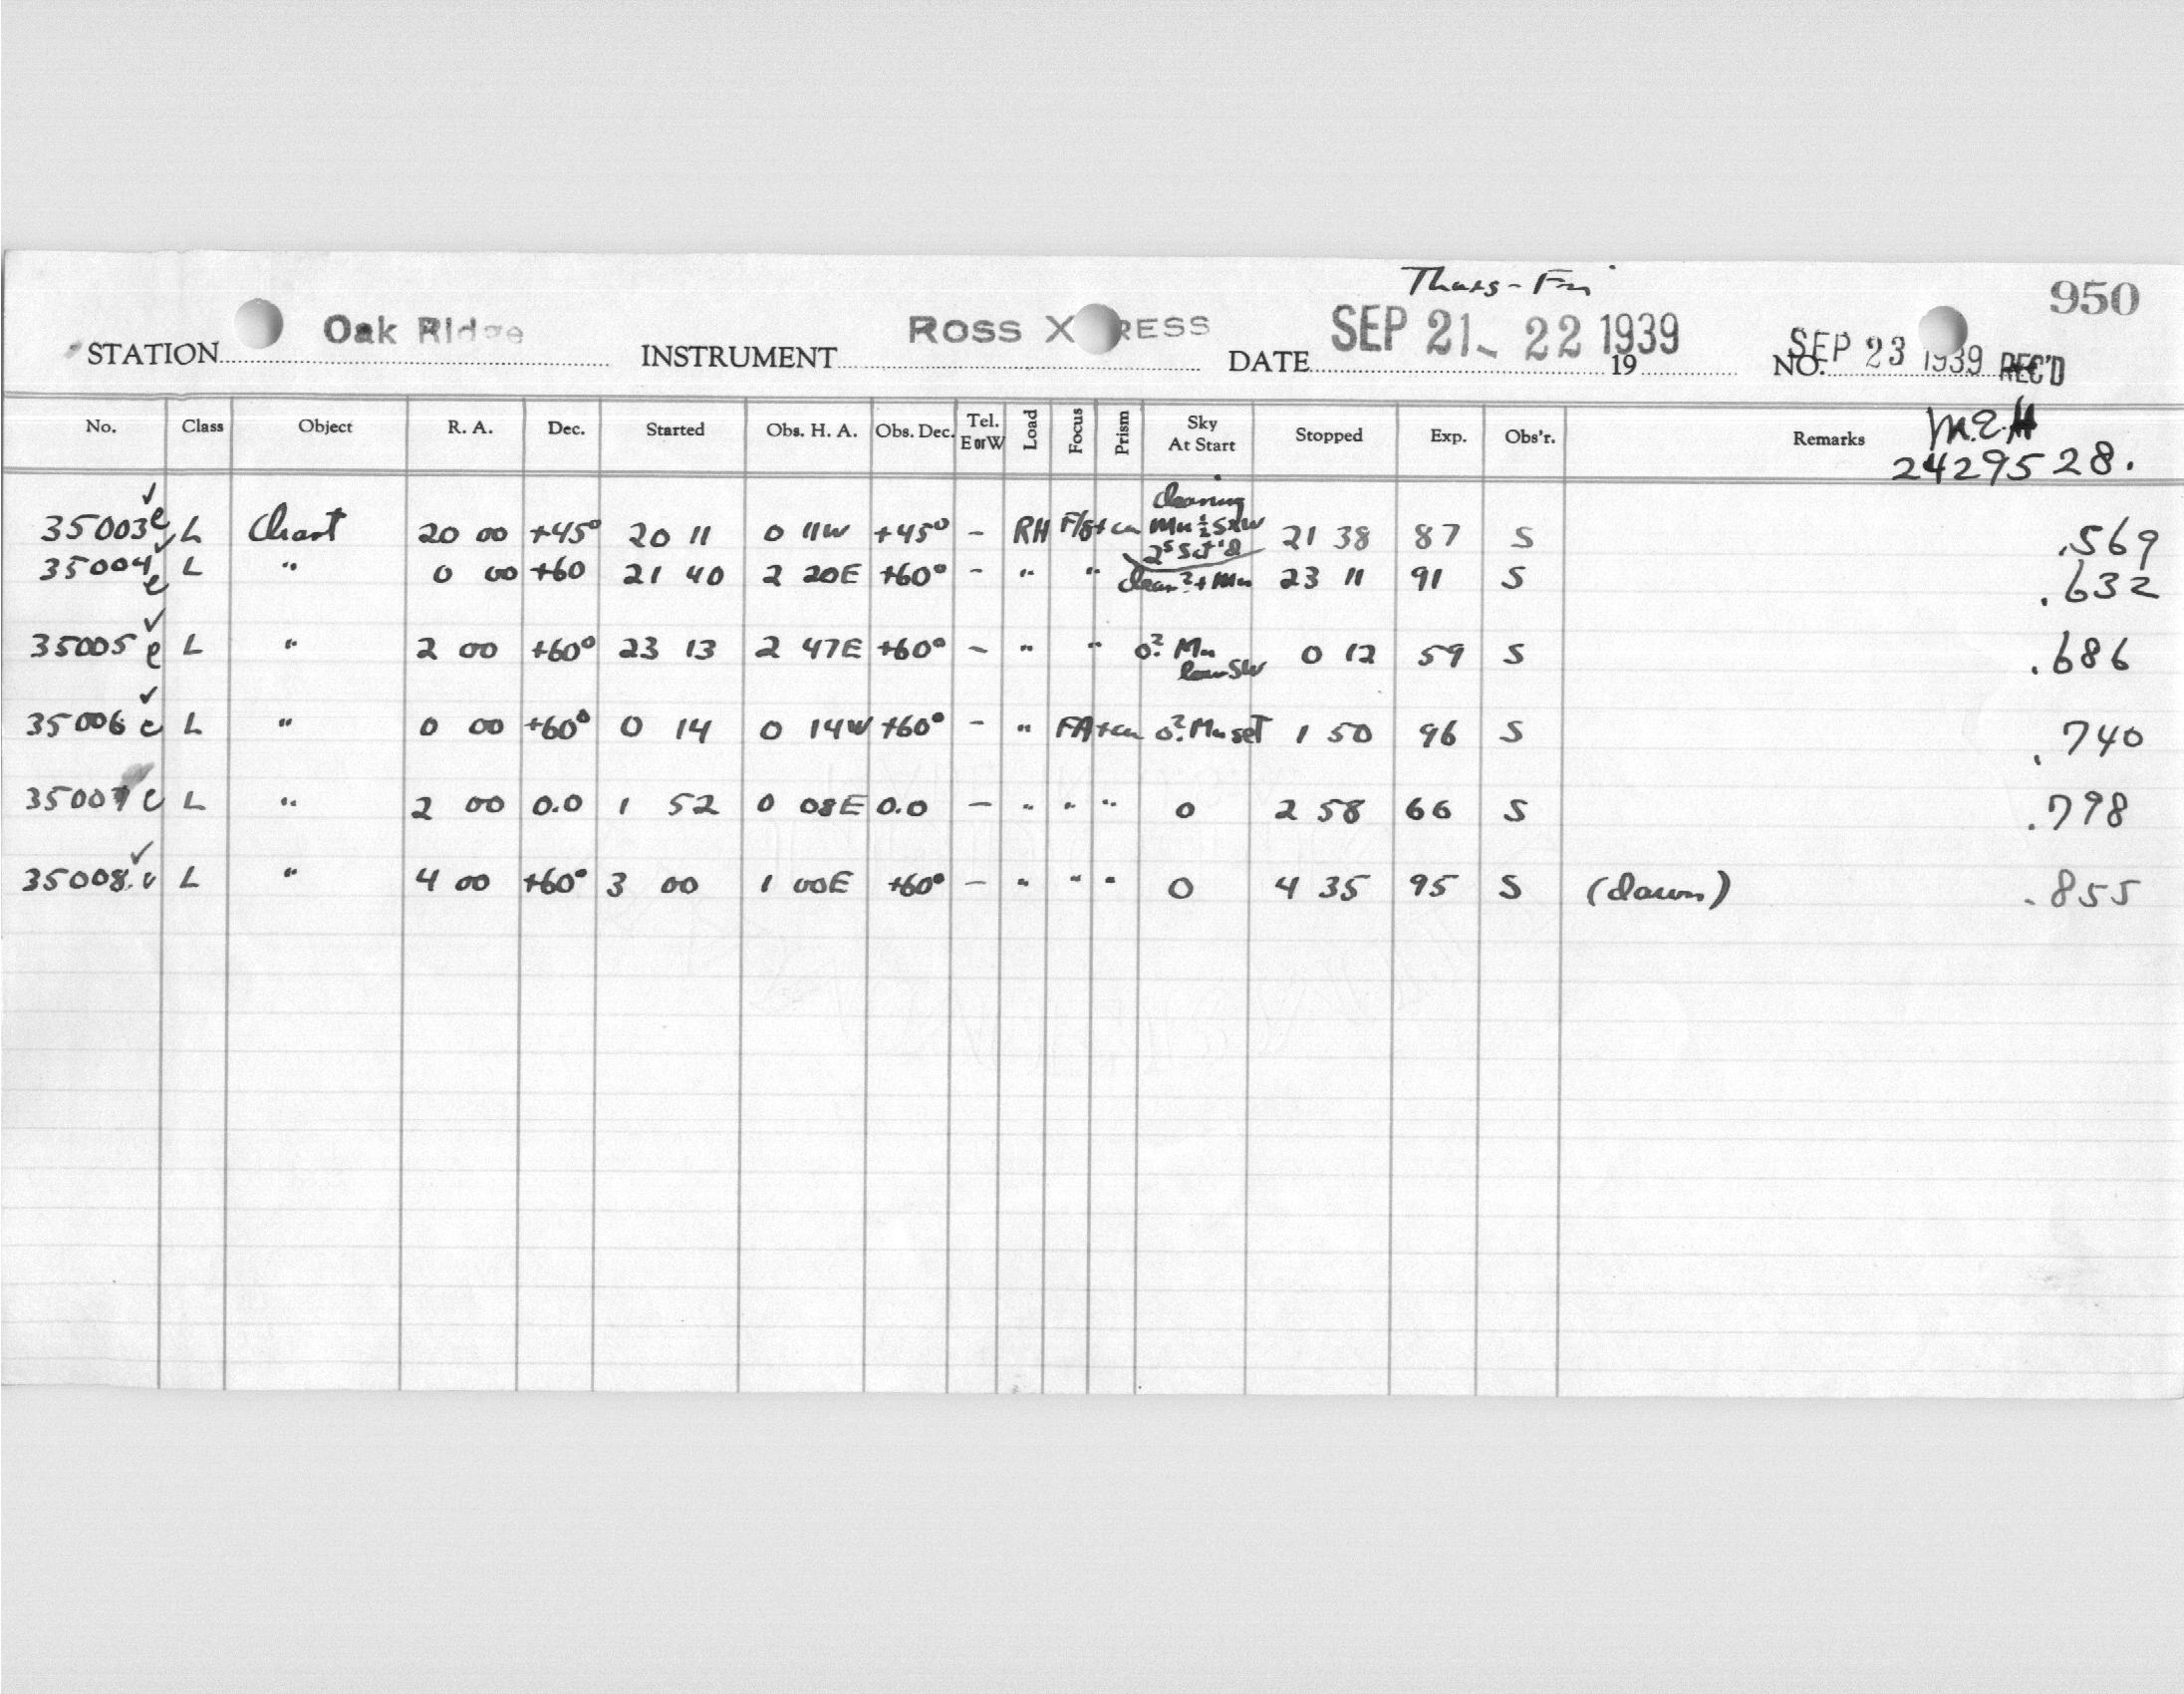 Thurs - Fri
950
STATION Oak Ridge INSTRUMENT ROSS X RESS DATE SEP 21 - 22 1939 19 NO. SEP 23 1939 REC'D
No. Class Object R. A. Dec. Started Obs. H. A. Obs. Dec. Tel. E or W Load Focus Prism Sky At Start Stopped Exp. Obs'r. Remarks M.E.H
2429528.
35003 e ✓ L Chart 20 00 +45° 20 11 0 11W +45° - RH F/8+cu Clearing Mn ½ SxW 2s Sct'd 21 38 87 S .569
35004 e ✓ L " 0 00 +60 21 40 2 20E +60° - " " Clear?+Mn 23 11 91 S .632
35005 e ✓ L " 2 00 +60° 23 13 2 47E +60° - " " 0? Mn low SW 0 12 59 S .686
35006 e ✓ L " 0 00 +60° 0 14 0 14W +60° - " FA+cu 0? Mn set 1 50 96 S .740
35007 e L " 2 00 0.0 1 52 0 08E 0.0 - " " " 0 2 58 66 S .798
35008. ✓ L " 4 00 +60° 3 00 1 00E +60° - " " " 0 4 35 95 S (dawn) .855